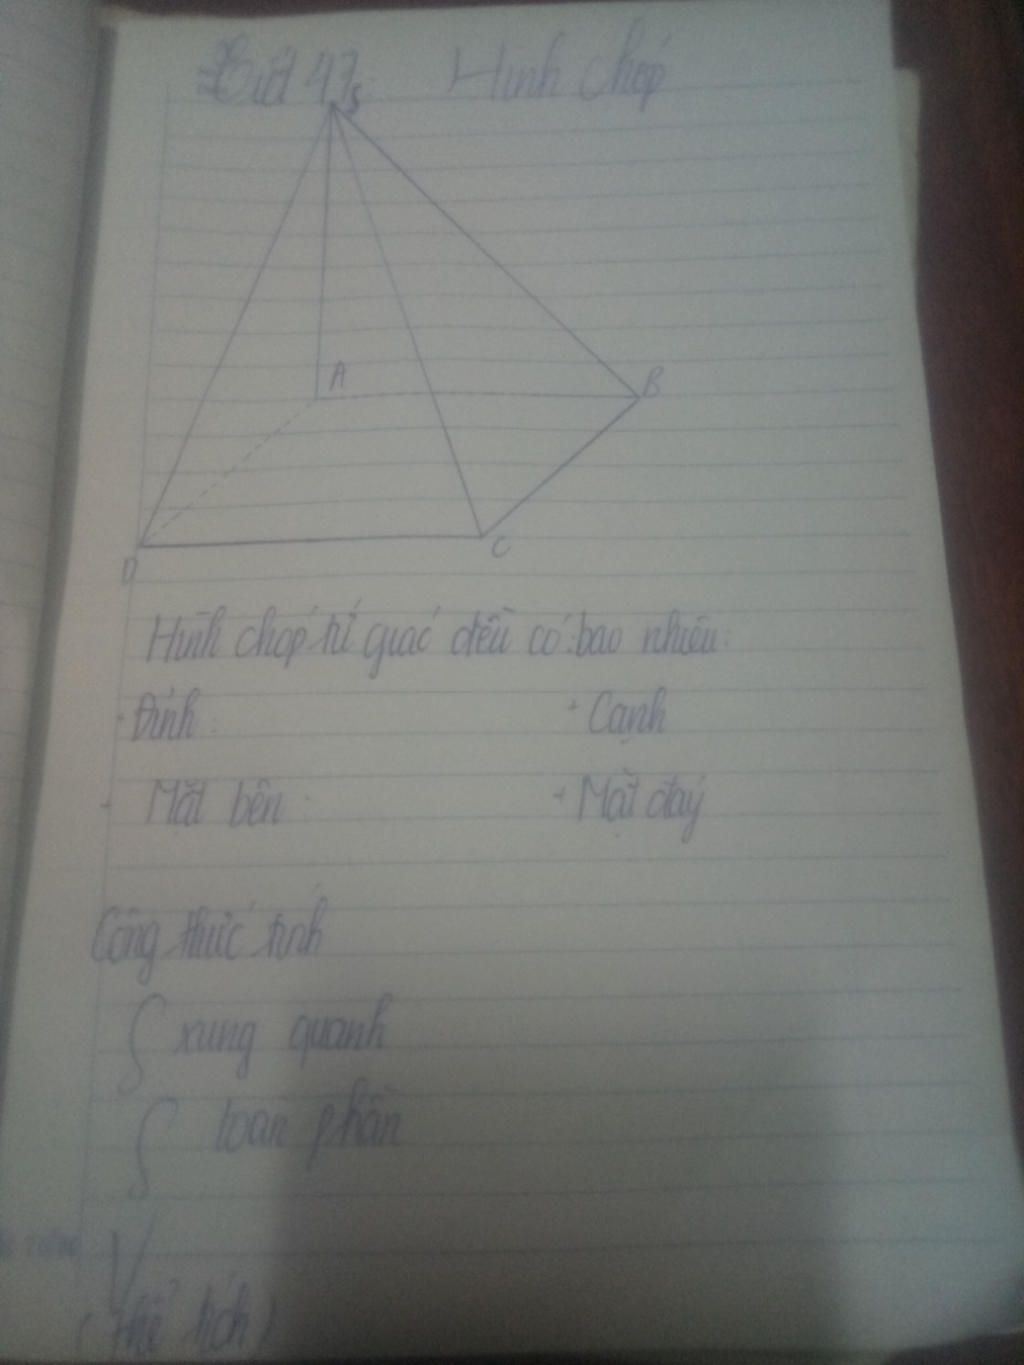 Tiết 47: Hình chóp
S
A
B
D
C
Hình chóp tứ giác đều có: bao nhiêu:
+ Đỉnh: + Cạnh
+ Mặt bên: + Mặt đáy
Công thức tính
S xung quanh
S toàn phần
V
(thể tích)